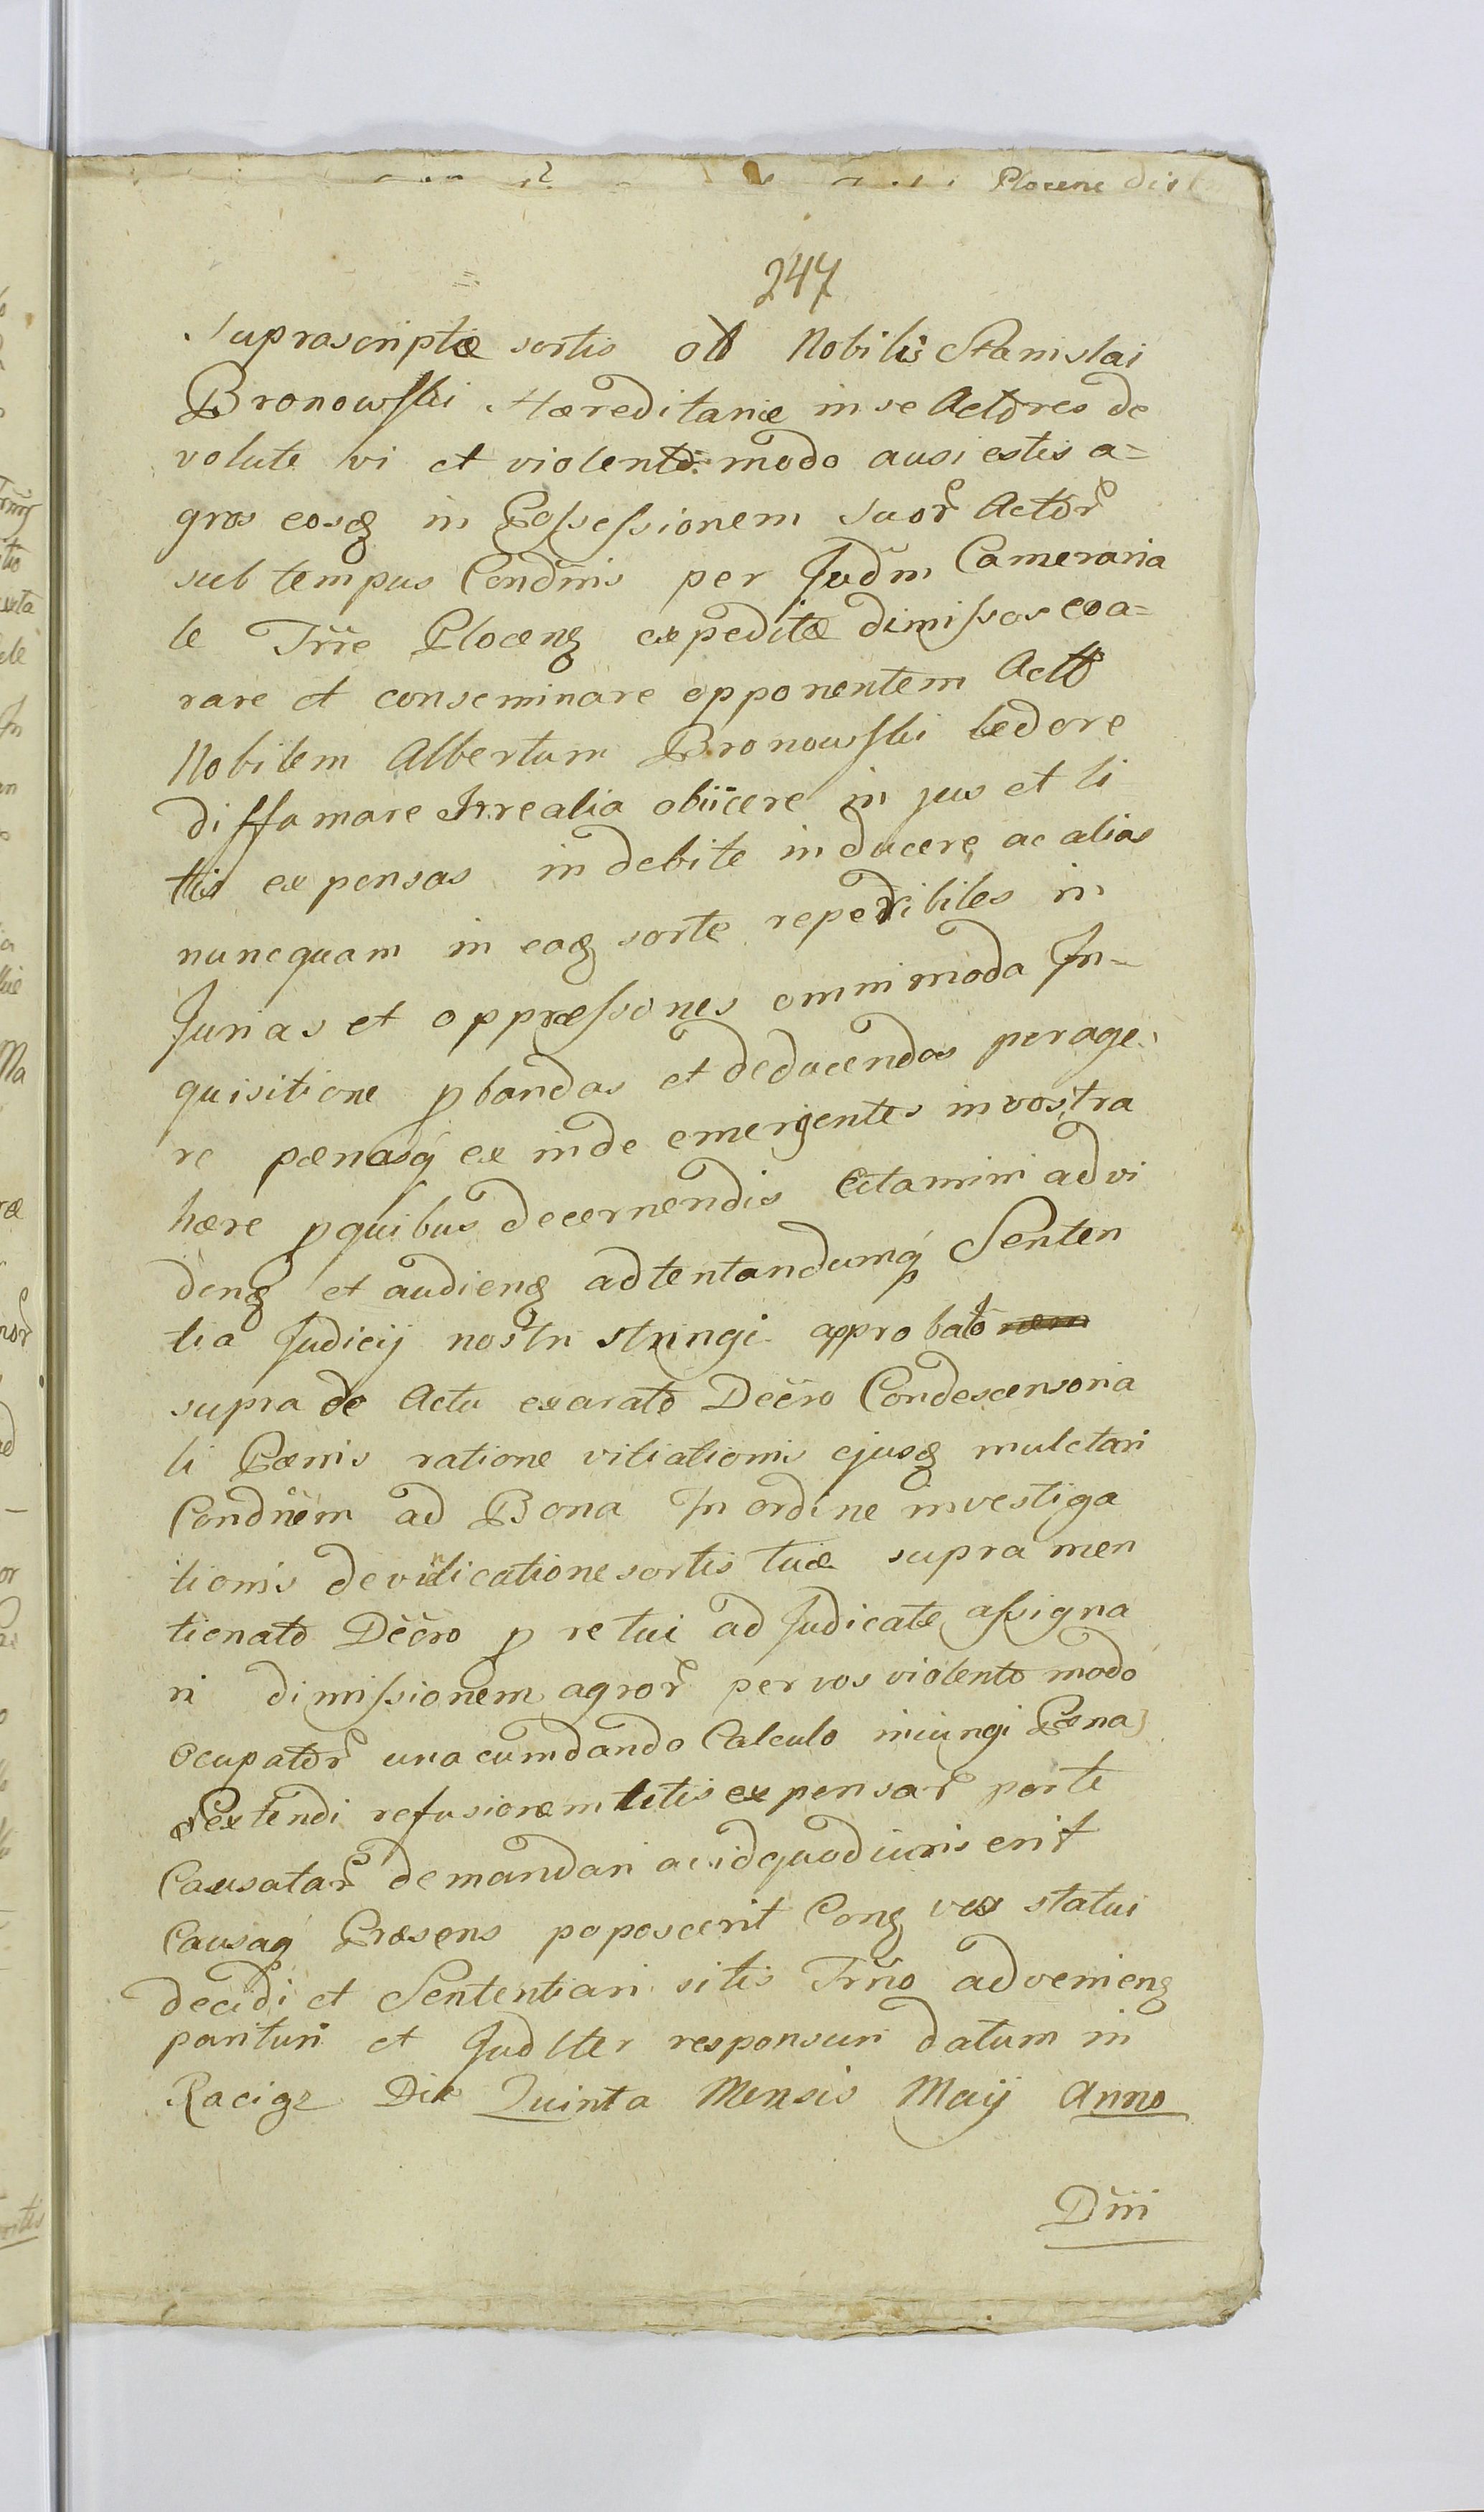 Plocene dist
247
Suprascriptæ sortis ob Nobilis Stanislai
Bronowski Hæreditariæ in se Actores de
volutæ vi et violento modo ausi estis a=
gros eosq in Possessionem Suor Actor
sub tempus Condnis per Judm Cameraria
le Trre Plocenq expeditæ dimissos exa=
rare et conseminare opponentem Act
Nobilem Albertum Bronowski ledere
diffamare Irrealia obiicere in jus et li
tis expensas indebite inducere ac alias
nuncquam in eaq sorte reperibiles in
Jurias et oppræssiones omnimoda In-
quisitione pbandas et deducendas perage
re pænasq ex inde emergentes in vos tra
here pquibus decernendis Citamini ad vi
denq et audienq adtentandumq Senten
tia Judicij nostri stringi approbato
supra de Actu exarato Decro Condescensoria
li Pænis ratione vitiationis ejusq mulctari
Condnem ad Bona In ordine investiga
tionis devincationesortis tuæ supra men
tionato Decro p re tui adJudicatæ assigna
ri dimissionem agror per vos violento modo
Ocupator una cumdando Calculo iniungi Pæna
extendi refusionem litis expensar parte
Causatar demandari ac idquod iuris erit
Causaq Præsens poposcerit Conq vos statui
decidi et Sententiari sitis Trno advenienq
parituri et Judlter responsuri datum in
Raciąz Die Quinta Mensis Maij Anno
Dni